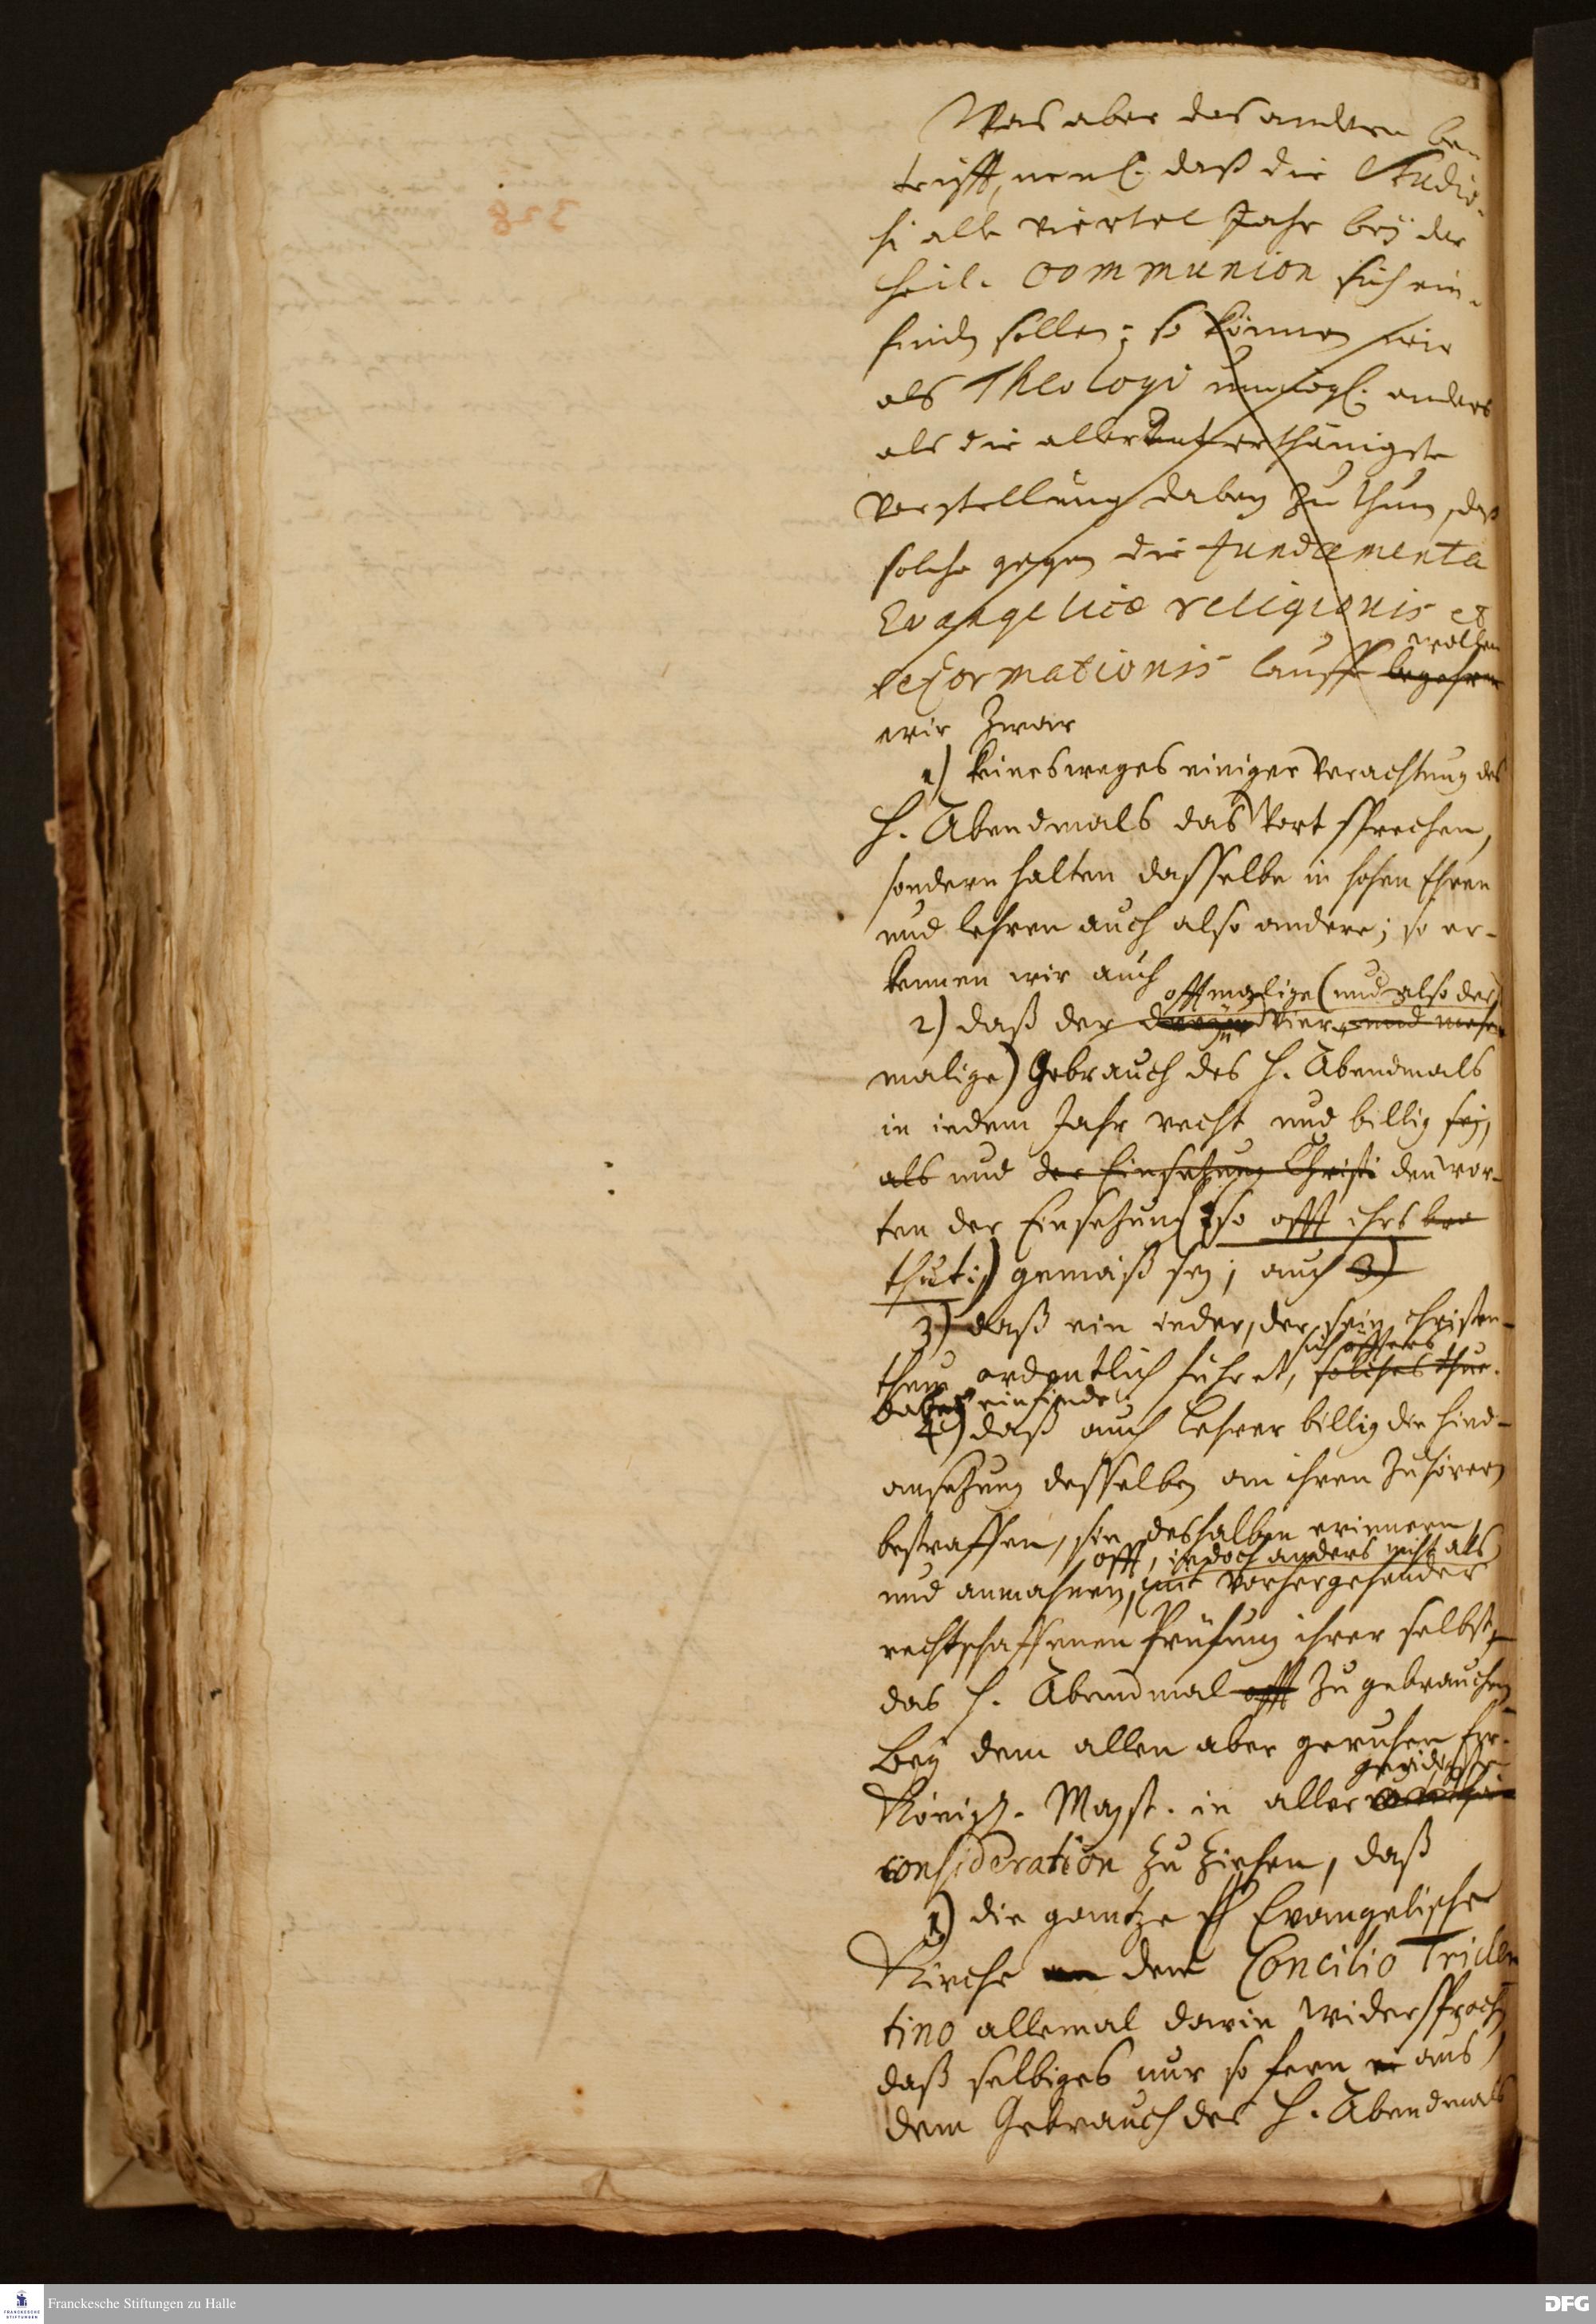 Was aber das andere be-
trifft, neml. daß die Studio-
si alle viertel Jahr bey der
heil. Communion sich ein-
finden sollen; so können wir
als Theologi unmögl. anders
als die allerunterthänigste
Vorstellung dabey zu thun, daß
solche gegen die fundamenta
Evangelicæ religionis et
wollen
reformationis lauffe begehren
wir zwar
1) keinesweges einiger Verachtung des
H. Abendmals das Wort sprechen,
sondern halten dasselbe in hohen Ehren
und lehren auch also andere; so er-
kennen wir auch
offtmalige (und also der
2) daß der vier und mehr
malige) Gebrauch des H. Abendmals
in iedem Jahr recht und billig sey,
als und der Einsetzung Christi den Wor-
ten der Einsetzung (so offt ihrs
thut:) gemäß sey; auch 3)
3) daß ein ieder, der sein Christen-
sich öffters
thum ordentlich führet, solches thue.
dabey einfinde;
4) daß auch Lehrer billig die Hind-
ansetzung desselben an ihren Zuhörern
bestraffen, sie deshalben erinnern,
offt, iedoch anders nicht als
und anmahnen, mit vorhergehender
rechtschaffenen Prüfung ihrer selbst,
das H. Abendmal offt zu gebrauchen.
Bey dem allen aber geruhen Ew.
gnädigste
Königl. Mayst. in aller
consideration zu ziehen, daß
1) die gantze Evangelische
Kirche dem Concilio Triden
tino allemal darin widersprochen
daß selbiges nur so fern aus
dem Gebrauch des H. Abendmals
Franckesche Stiftungen zu Halle
DFG